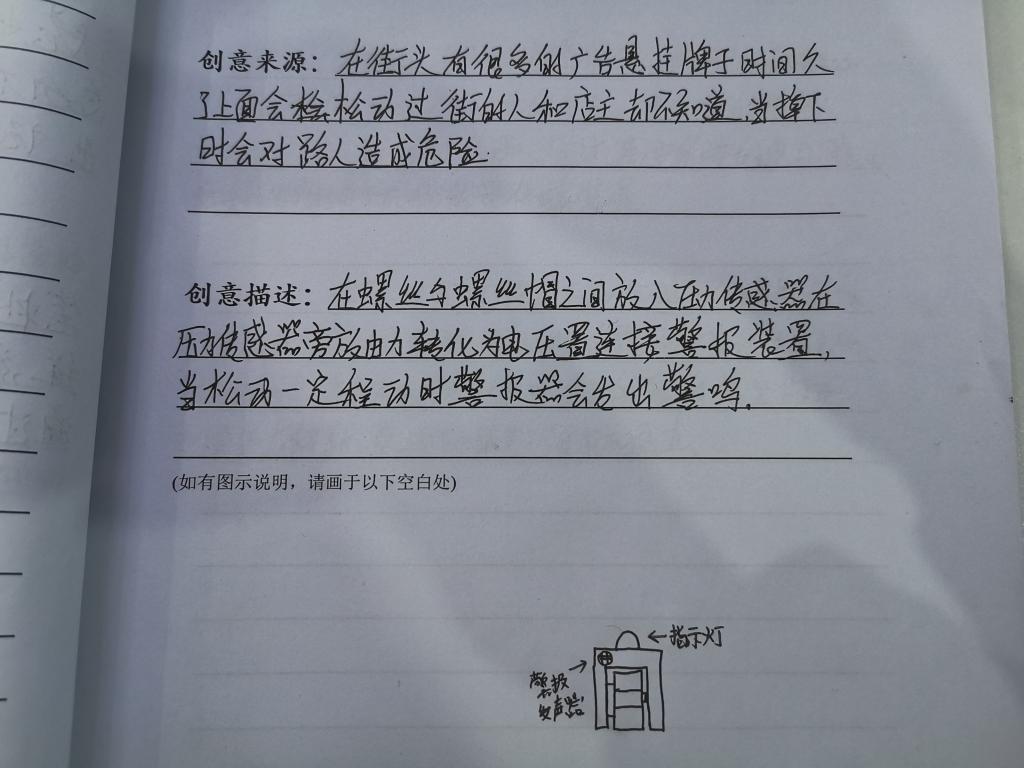 创意来源：在街头有很多的广告悬挂牌子时间久
了上面会松动过街的人和店主却不知道，当掉下
时会对路人造成危险.
创意描述：在螺丝与螺丝帽之间放入压力传感器在
压力传感器旁放由力转化为电压置连接警报装置，
当松动一定程动时警报器会发出警鸣.
(如有图示说明，请画于以下空白处)
←指示灯
警报→
发声器